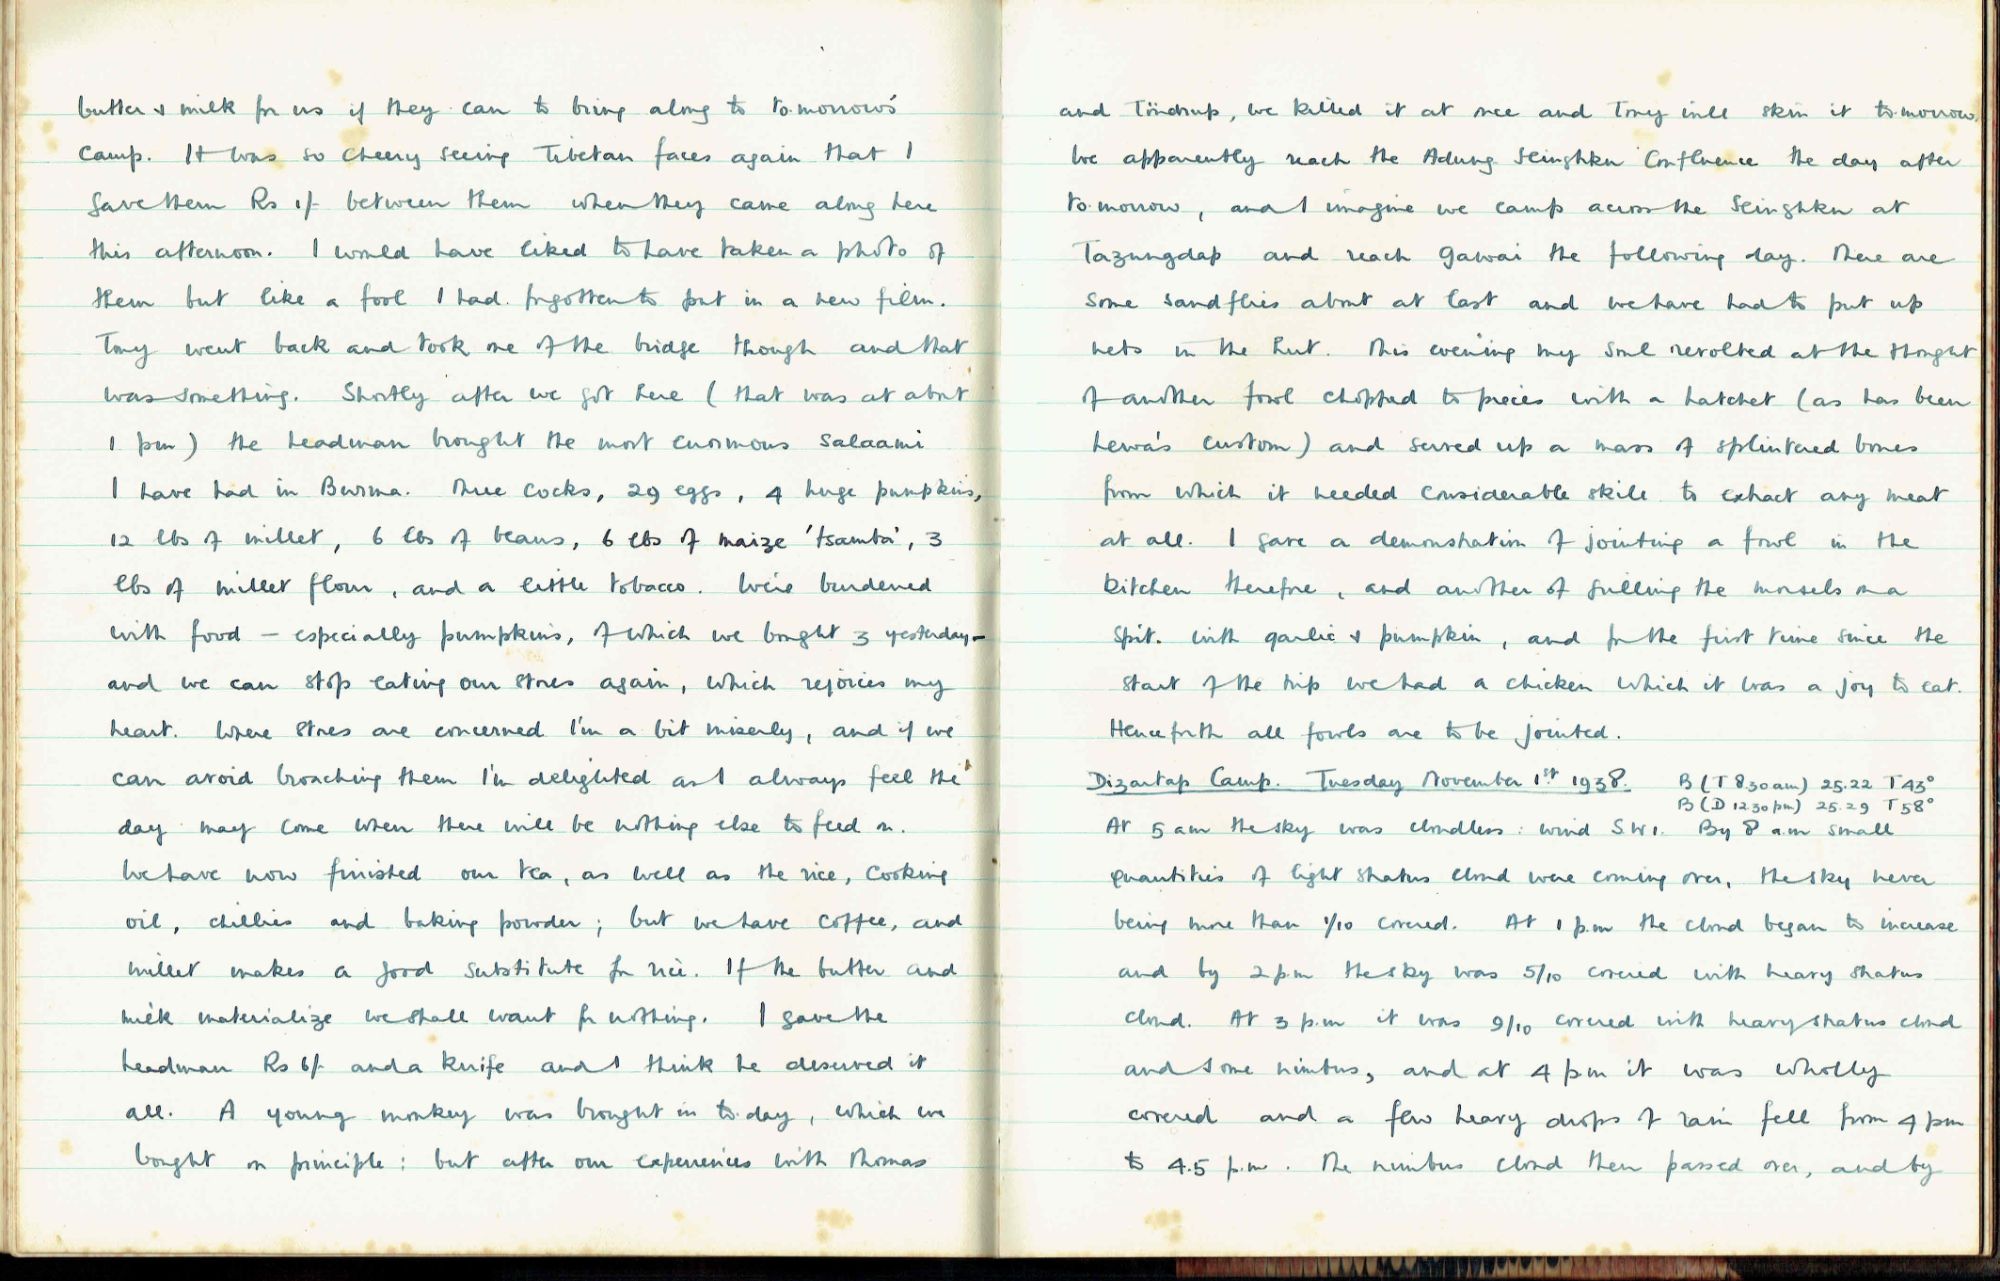 butter & milk for us if they can to bring along to to-morrow's
camp. It was so cheery seeing Tibetan faces again that I
gave them Rs 1/- between them when they came along here
this afternoon. I would have liked to have taken a photo of
them but like a fool I had forgotten to put in a new film.
Tony went back and took one of the bridge though and that
was something. Shortly after we got here (that was at about
1 pm) the headman brought the most enormous salaami
I have had in Burma. Three cocks, 29 eggs, 4 huge pumpkins,
12 lbs of millet, 6 lbs of beans, 6 lbs of maize 'tsamba', 3
lbs of millet flour, and a little tobacco. We're burdened
with food – especially pumpkins, of which we bought 3 yesterday –
and we can stop eating our stores again, which rejoices my
heart. Where stores are concerned I'm a bit miserly, and if we
can avoid broaching them I'm delighted as I always feel the
day may come when there will be nothing else to feed on.
We have now finished our tea, as well as the rice, cooking
oil, chillies and baking powder; but we have coffee, and
millet makes a good substitute for rice. If the butter and
milk materialize we shall want for nothing. I gave the
headman Rs 6/- and a knife and I think he deserved it
all. A young monkey was brought in to-day, which we
bought on principle: but after our experiences with Thomas
and Töndrup, we killed it at once and Tony will skin it to-morrow.
We apparently reach the Adung Seinghku Confluence the day after
to-morrow, and I imagine we camp across the Seinghku at
Tazungdap and reach Gawai the following day. There are
some sandflies about at last and we have had to put up
nets in the hut. This evening my soul revolted at the thought
of another fowl chopped to pieces with a hatchet (as has been
Lewa's custom) and served up a mass of splintered bones
from which it needed considerable skill to extract any meat
at all. I gave a demonstration of jointing a fowl in the
kitchen therefore, and another of grilling the morsels on a
spit. With garlic & pumpkin, and for the first time since the
start of the trip we had a chicken which it was a joy to eat.
Henceforth all fowls are to be jointed.
Dizartap Camp. Tuesday November 1st 1938. B (T 8.30 am) 25.22 T 43°
B (D 12.30 pm) 25.29 T 58°
At 5 am the sky was cloudless: wind SW 1. By 8 a.m small
quantities of light stratus cloud were coming over, the sky never
being more than 1/10 covered. At 1 p.m the cloud began to increase
and by 2 p.m the sky was 5/10 covered with heavy stratus
cloud. At 3 p.m it was 9/10 covered with heavy stratus cloud
and some nimbus, and at 4 p.m it was wholly
covered and a few heavy drops of rain fell from 4 pm
to 4.5 p.m. The nimbus cloud then passed over, and by